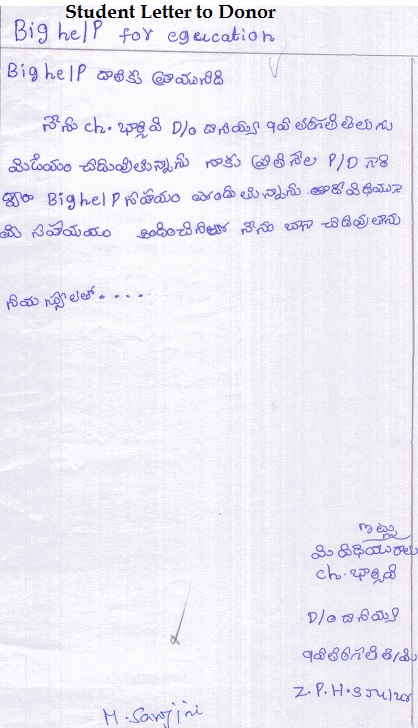 Student Letter to Donor
Big help for education
Big help దాతకు వ్రాయునది
నేను ch. భార్గవి D/o దానయ్య 9వ తరగతి తెలుగు
మిడియం చదువుతున్నాను నాకు ప్రతి నెల P/D గారి
ద్వారా Big help సహయం పొందుతున్నాను
మి సహయం అందించినచో నేను బాగా చదువుతాను
ఇట్లు
మి విధేయురాలు
ch. భార్గవి
D/o దానయ్య
9వ తరగతి తె/మి
Z.P.H.S